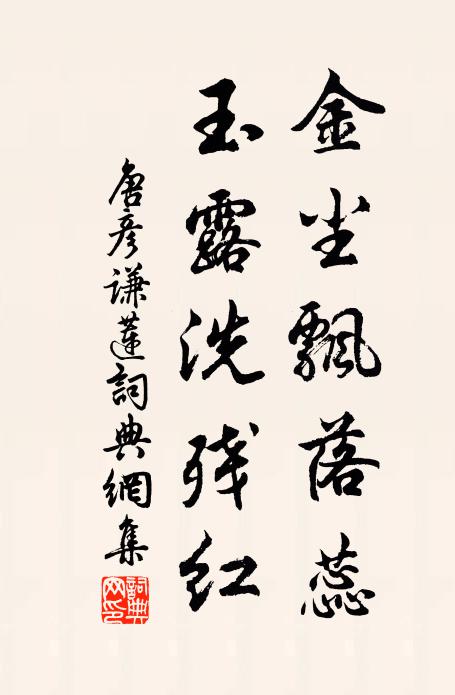 金尘飘落蕊
玉露洗残红
唐彦谦莲词典網集
詞典网印